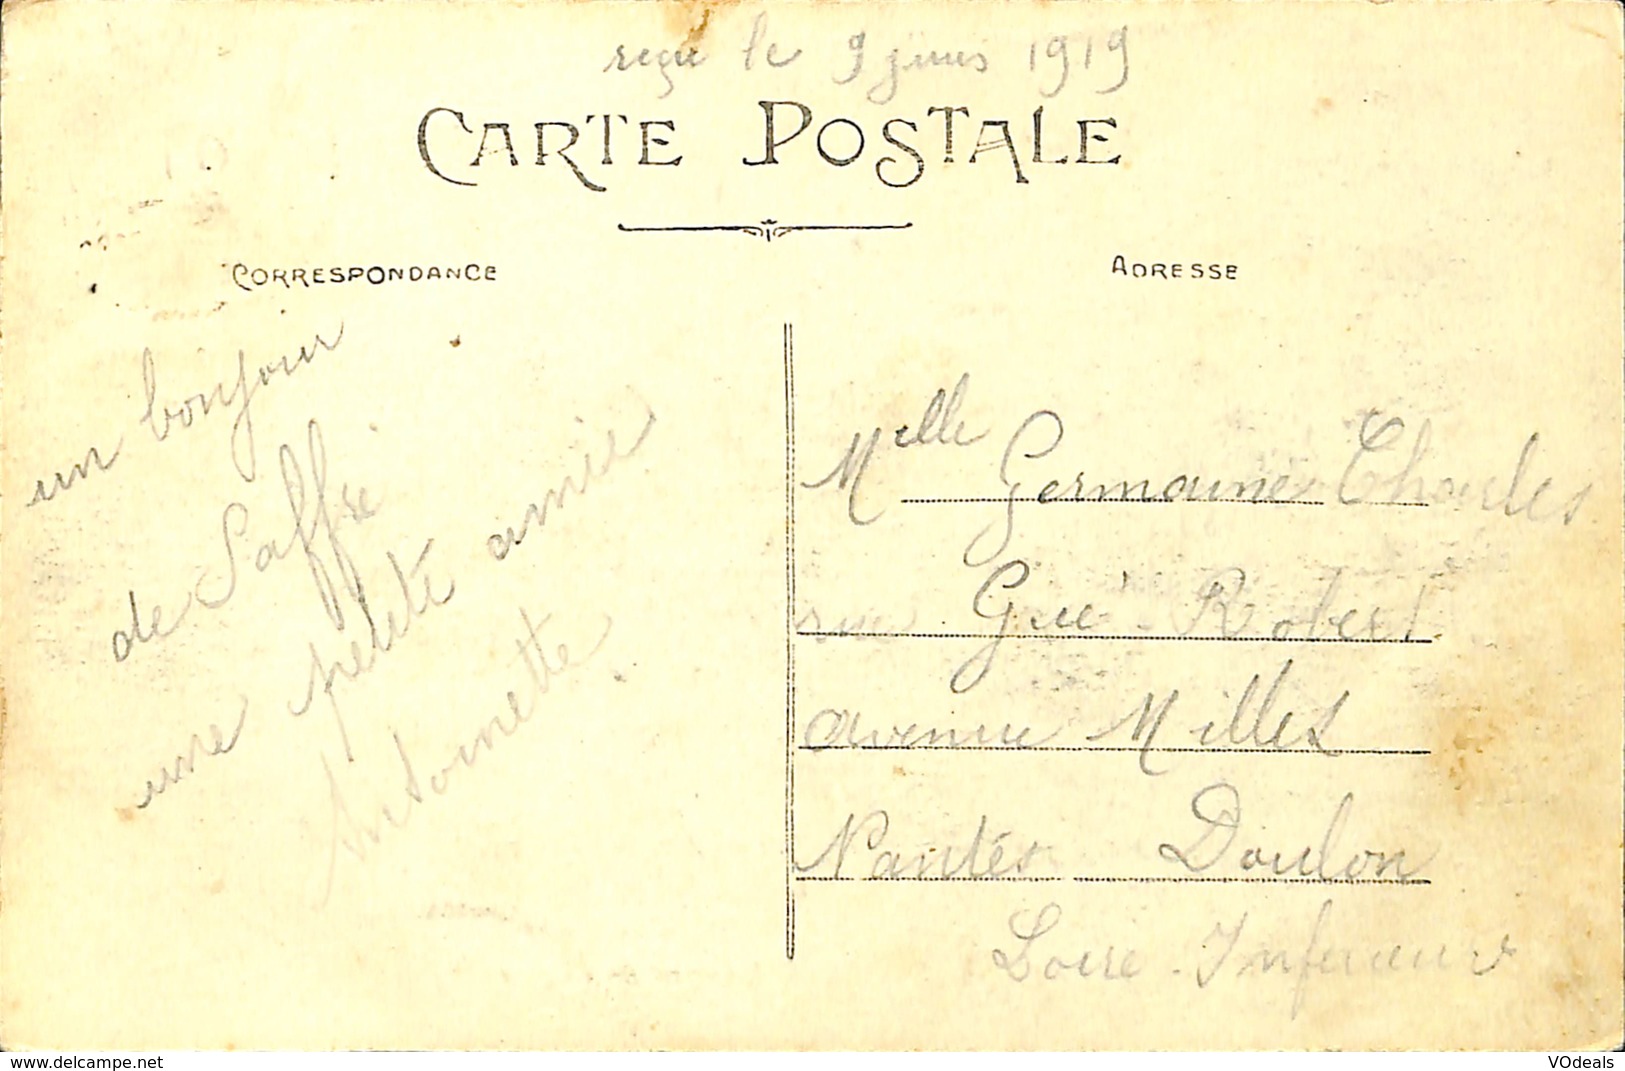 reçu le 9 juin 1919
CARTE POSTALE
CORRESPONDANCE
ADRESSE
un bonjour
de Saffré
une petite amie
Antoinette
Melle Germaine Charles
rue Gué Robert
avenue Millet
Nantes Doulon
Loire-Inferieure
VOdeals
https://www.delcampe.net